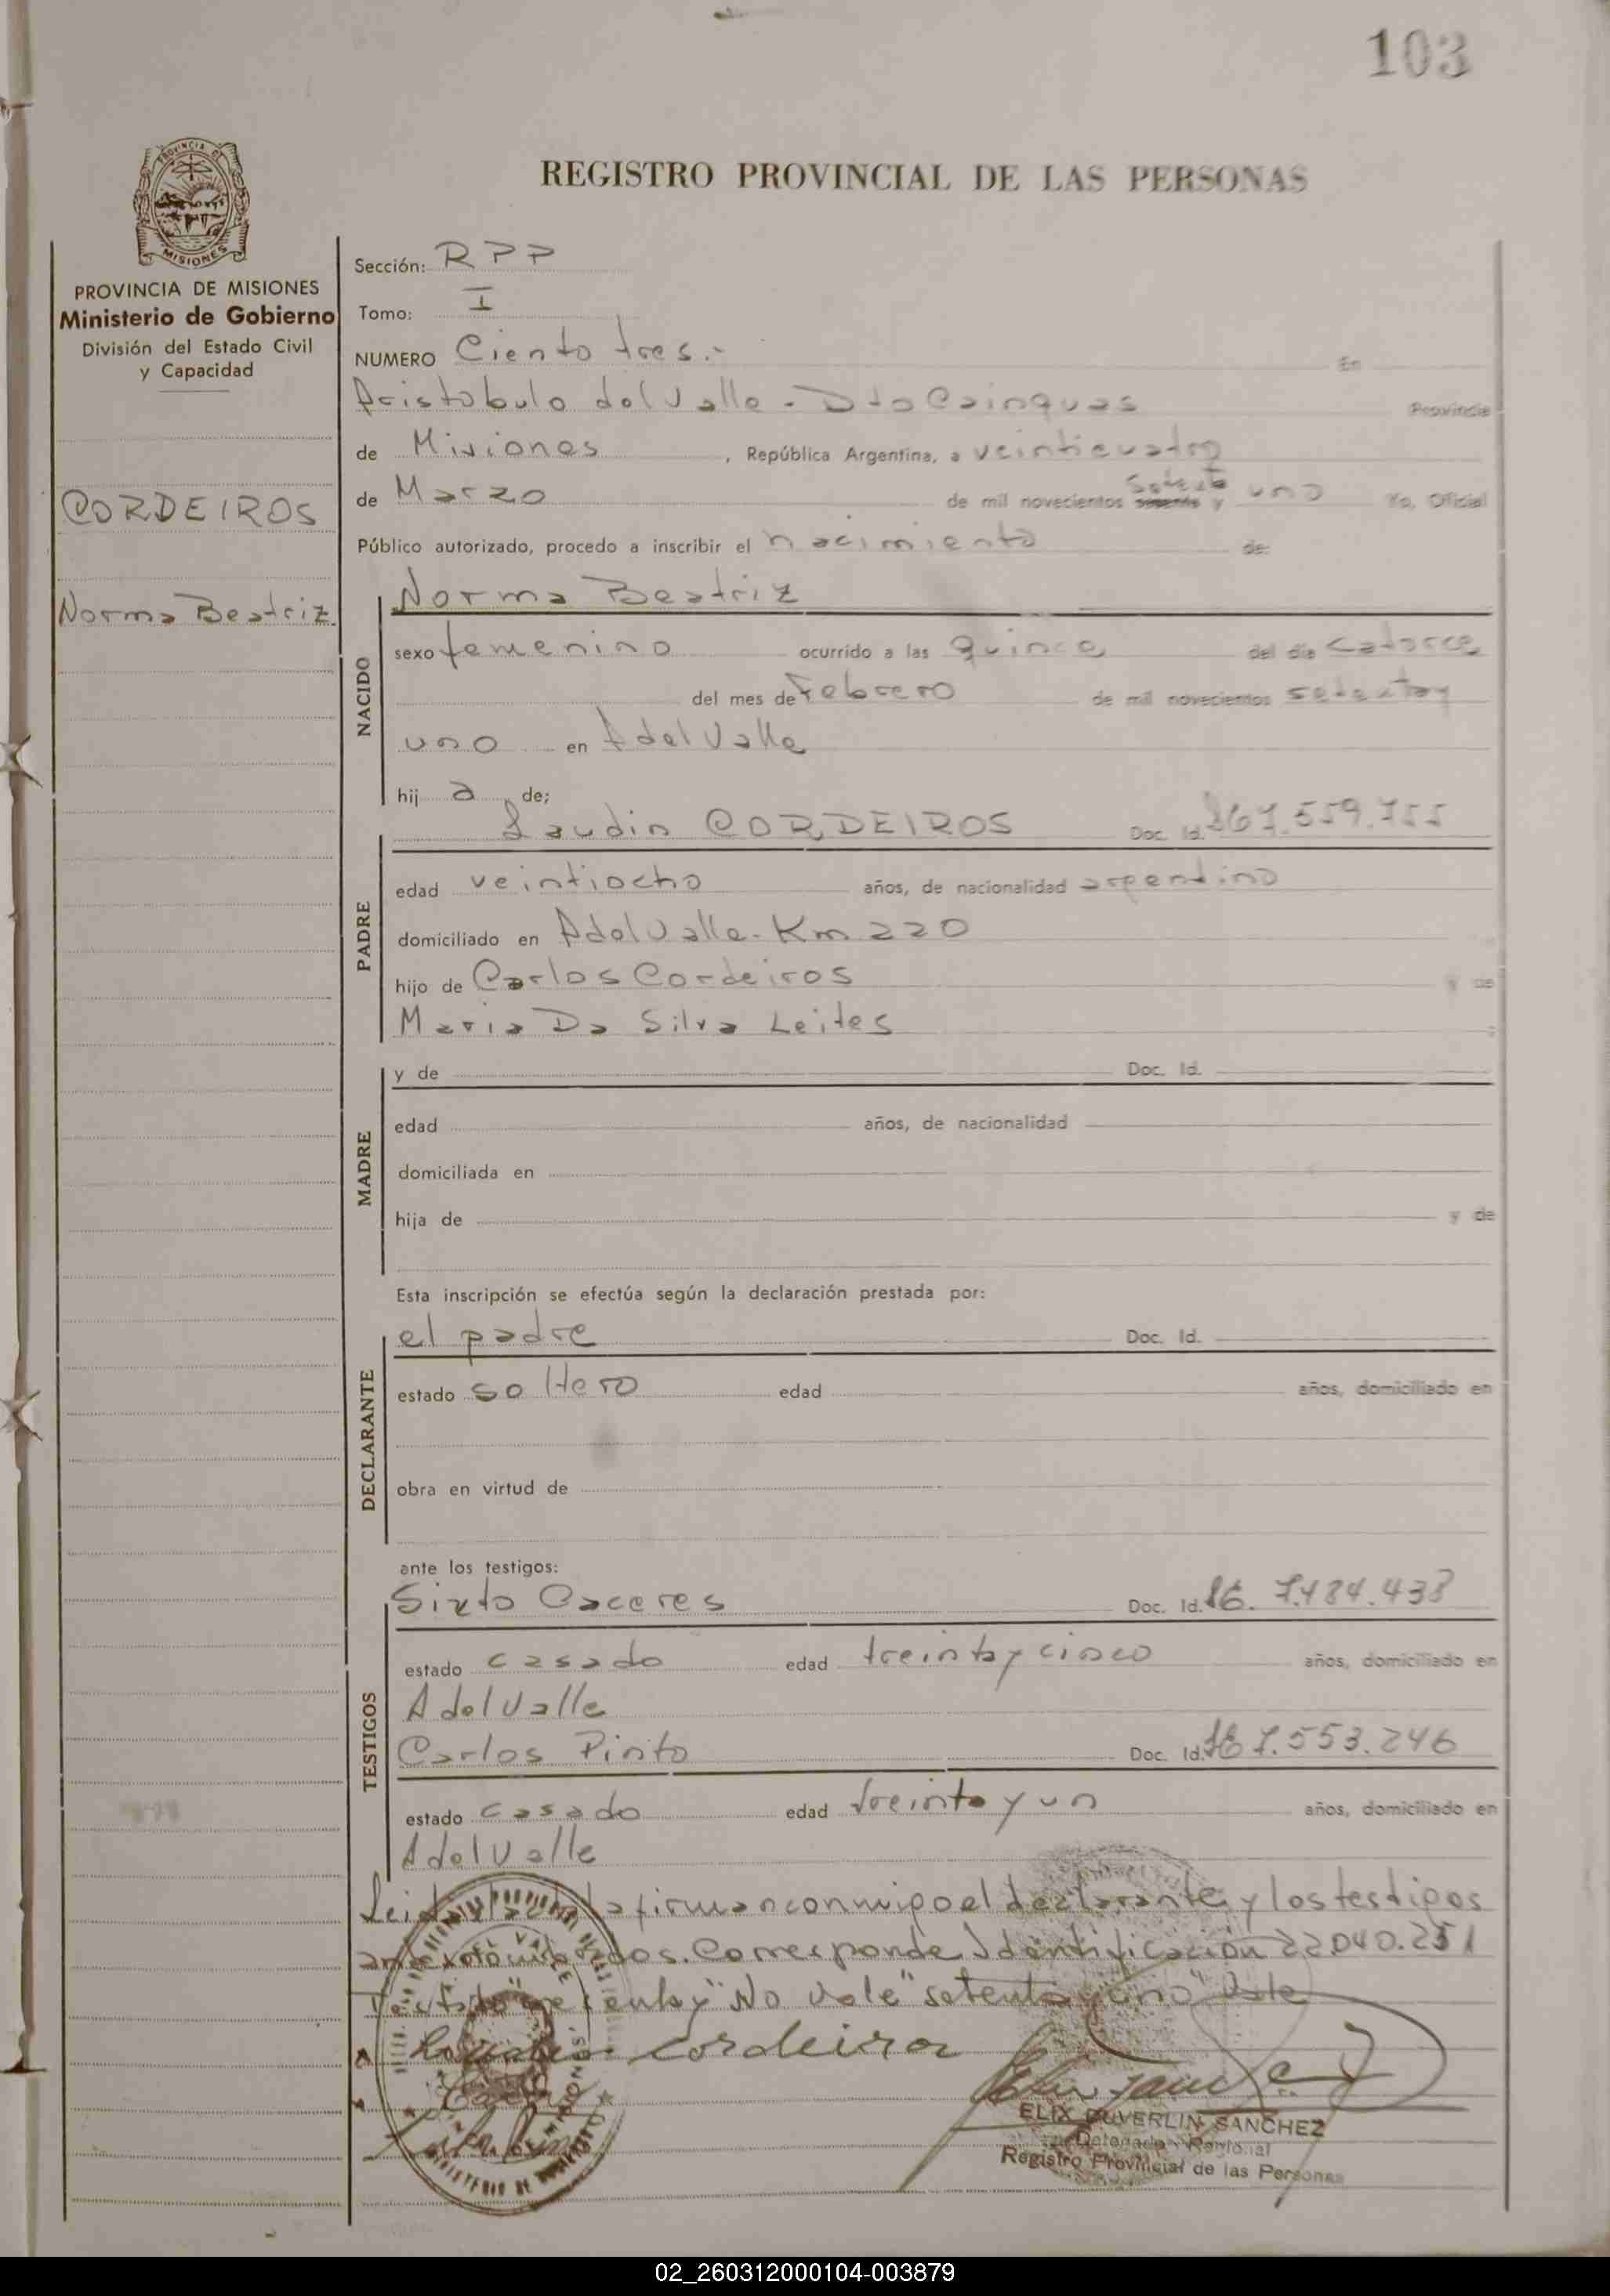 103
REGISTRO PROVINCIAL DE LAS PERSONAS
PROVINCIA DE MISIONES
Ministerio de Gobierno
División del Estado Civil
y Capacidad
CORDEIROS
Norma Beatriz
Sección: RPP
Tomo: I
NUMERO Ciento tres.- En
Aristobulo del Valle - Dto Cainguas Provincia
de Misiones, República Argentina, a veinticuatro
de Marzo de mil novecientos sesenta y uno Yo, Oficial
Público autorizado, procedo a inscribir el nacimiento de:
NACIDO
Norma Beatriz
sexo femenino ocurrido a las quince del día catorce
del mes de Febrero de mil novecientos setenta y
uno en A del Valle
hij a de;
PADRE
Laudin CORDEIROS Doc. Id. 7.559.755
edad veintiocho años, de nacionalidad argentino
domiciliado en A del Valle - Km 220
hijo de Carlos Cordeiros y de
Maria Da Silva Leites ;
MADRE
y de Doc. Id.
edad años, de nacionalidad
domiciliada en
hija de y de
Esta inscripción se efectúa según la declaración prestada por:
DECLARANTE
el padre Doc. Id.
estado soltero edad años, domiciliado en
obra en virtud de
ante los testigos:
TESTIGOS
Sixto Caceres Doc. Id. 7.484.438
estado casado edad treinta y cinco años, domiciliado en
A del Valle
Carlos Pinto Doc. Id. 7.553.246
estado casado edad treinta y un años, domiciliado en
A del Valle
Leida el acta firman conmigo el declarante y los testigos
Corresponde Identificación 22.040.251
"No Vale" "setenta y uno" Vale
Cordeiro
ELIX DUVERLIN SANCHEZ
Registro Provincial de las Personas
02_260312000104-003879